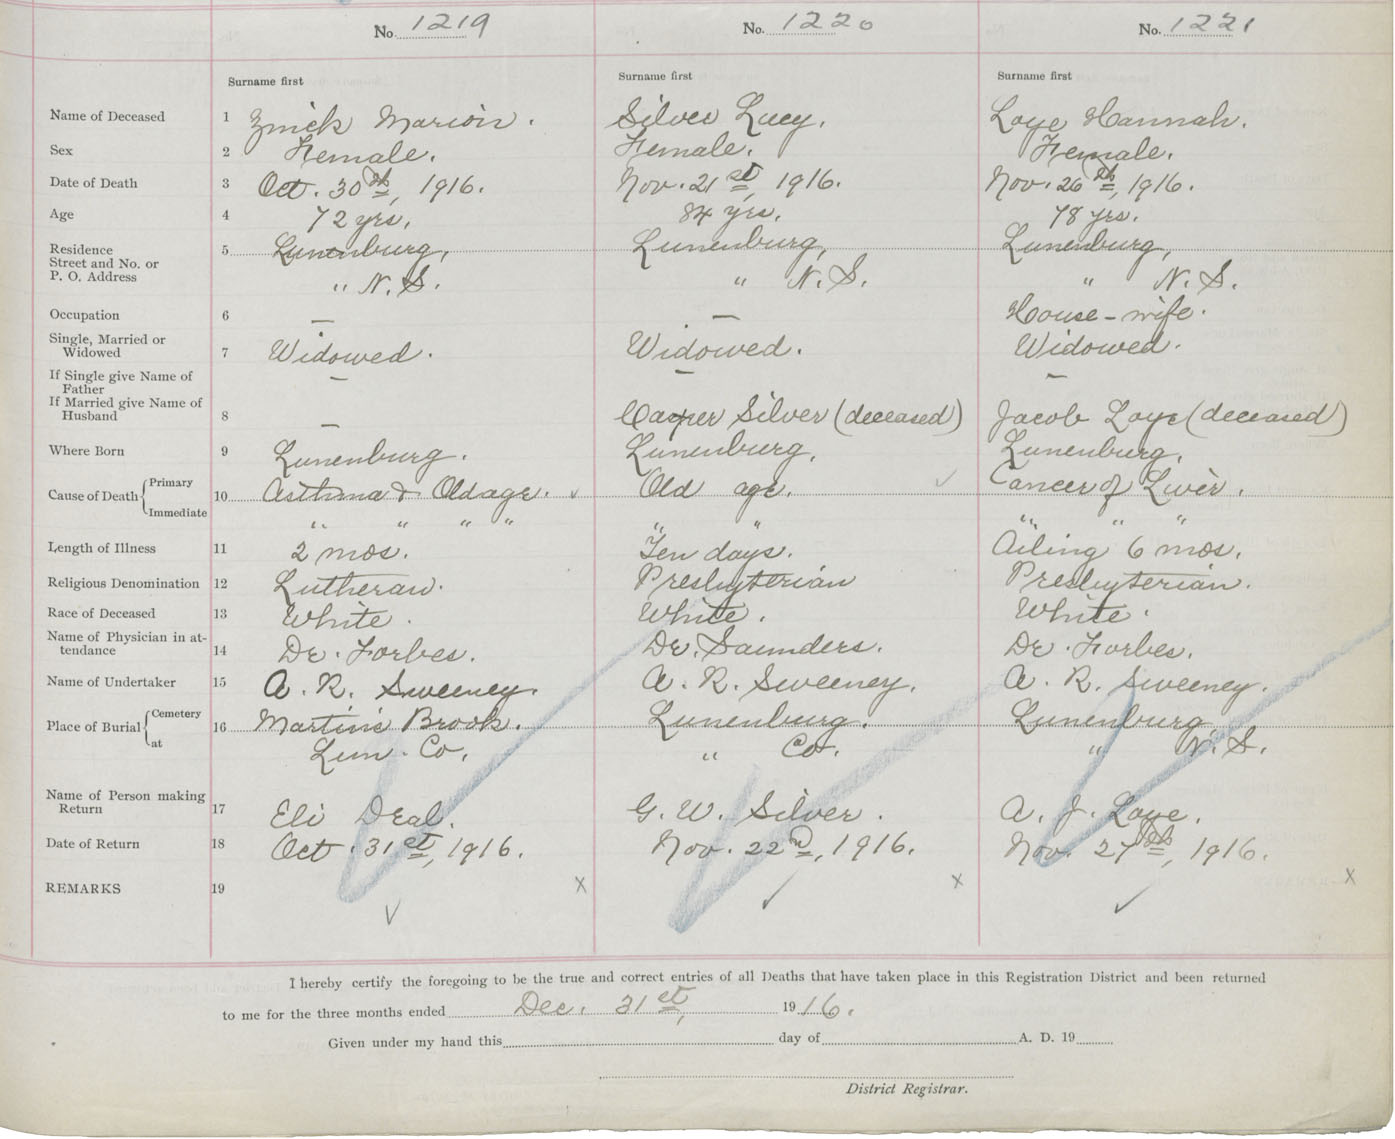 No. 1219 No. 1220 No. 1221
Surname first Surname first Surname first
Name of Deceased 1 Zinick Marion. Silver Lucy. Loye Hannah.
Sex 2 Female. Female. Female.
Date of Death 3 Oct. 30th, 1916. Nov. 21st, 1916. Nov. 26th, 1916.
Age 4 72 yrs. 84 yrs. 78 yrs.
Residence 5 Lunenburg, Lunenburg, Lunenburg,
Street and No. or
P. O. Address " N. S. " N. S. " N. S.
Occupation 6 — — House-wife.
Single, Married or
Widowed 7 Widowed. Widowed. Widowed.
If Single give Name of
Father — — —
If Married give Name of
Husband 8 — Casper Silver (deceased) Jacob Loye (deceased)
Where Born 9 Lunenburg. Lunenburg. Lunenburg.
Cause of Death { Primary
10 Asthma & Old age. Old age. Cancer of Liver.
Immediate " " " " " " " " "
Length of Illness 11 2 mos. Ten days. Ailing 6 mos.
Religious Denomination 12 Lutheran. Presbyterian Presbyterian.
Race of Deceased 13 White. White. White.
Name of Physician in at-
tendance 14 Dr. Forbes. Dr. Saunders. Dr. Forbes.
Name of Undertaker 15 A. R. Sweeney. A. R. Sweeney. A. R. Sweeney.
Place of Burial { Cemetery 16 Martin's Brook. Lunenburg. Lunenburg
at Lun. Co. " Co. " N. S.
Name of Person making
Return 17 Eli Deal. G. W. Silver. A. J. Loye.
Date of Return 18 Oct. 31st, 1916. Nov. 22nd, 1916. Nov. 27th, 1916.
REMARKS 19 x x x
I hereby certify the foregoing to be the true and correct entries of all Deaths that have taken place in this Registration District and been returned
to me for the three months ended Dec. 31st, 1916.
Given under my hand this day of A. D. 19
District Registrar.